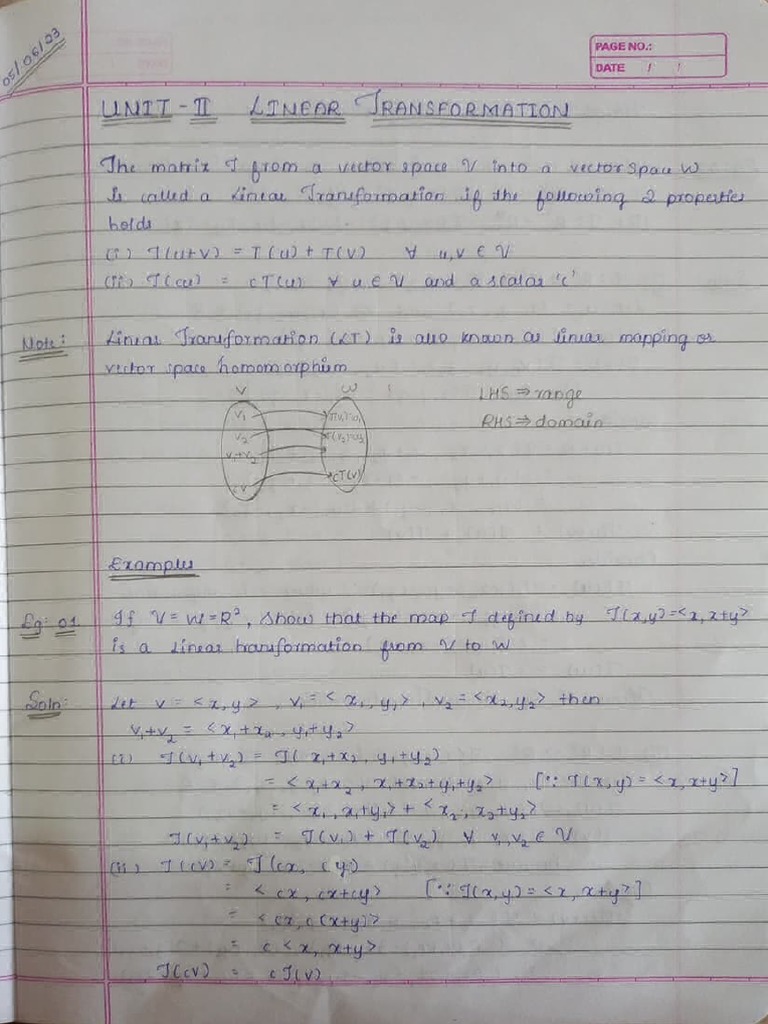 05/06/23
PAGE NO.:
DATE / /
UNIT - II LINEAR TRANSFORMATION
The matrix T from a vector space V into a vector space W
is called a Linear Transformation if the following 2 properties
holds
(i) T(u+v) = T(u) + T(v) ∀ u,v ∈ V
(ii) T(cu) = cT(u) ∀ u ∈ V and a scalar 'c'
Note: Linear Transformation (LT) is also known as linear mapping or
vector space homomorphism
V W
LHS ⇒ range
RHS ⇒ domain
v₁
v₂
v₁+v₂
cv cT(v)
Examples
Eg: 01 If V = W = R², show that the map T defined by T(x,y) = <x, x+y>
is a Linear transformation from V to W
Soln: Let v = <x, y>, v₁ = <x₁, y₁>, v₂ = <x₂, y₂> then
v₁+v₂ = <x₁+x₂, y₁+y₂>
(i) T(v₁+v₂) = T(x₁+x₂, y₁+y₂)
= <x₁+x₂, x₁+x₂+y₁+y₂> [∵ T(x,y) = <x, x+y>]
= <x₁, x₁+y₁> + <x₂, x₂+y₂>
T(v₁+v₂) = T(v₁) + T(v₂) ∀ v₁,v₂ ∈ V
(ii) T(cv) = T(cx, cy)
= <cx, cx+cy> [∵ T(x,y) = <x, x+y>]
= <cx, c(x+y)>
= c <x, x+y>
T(cv) = cT(v)